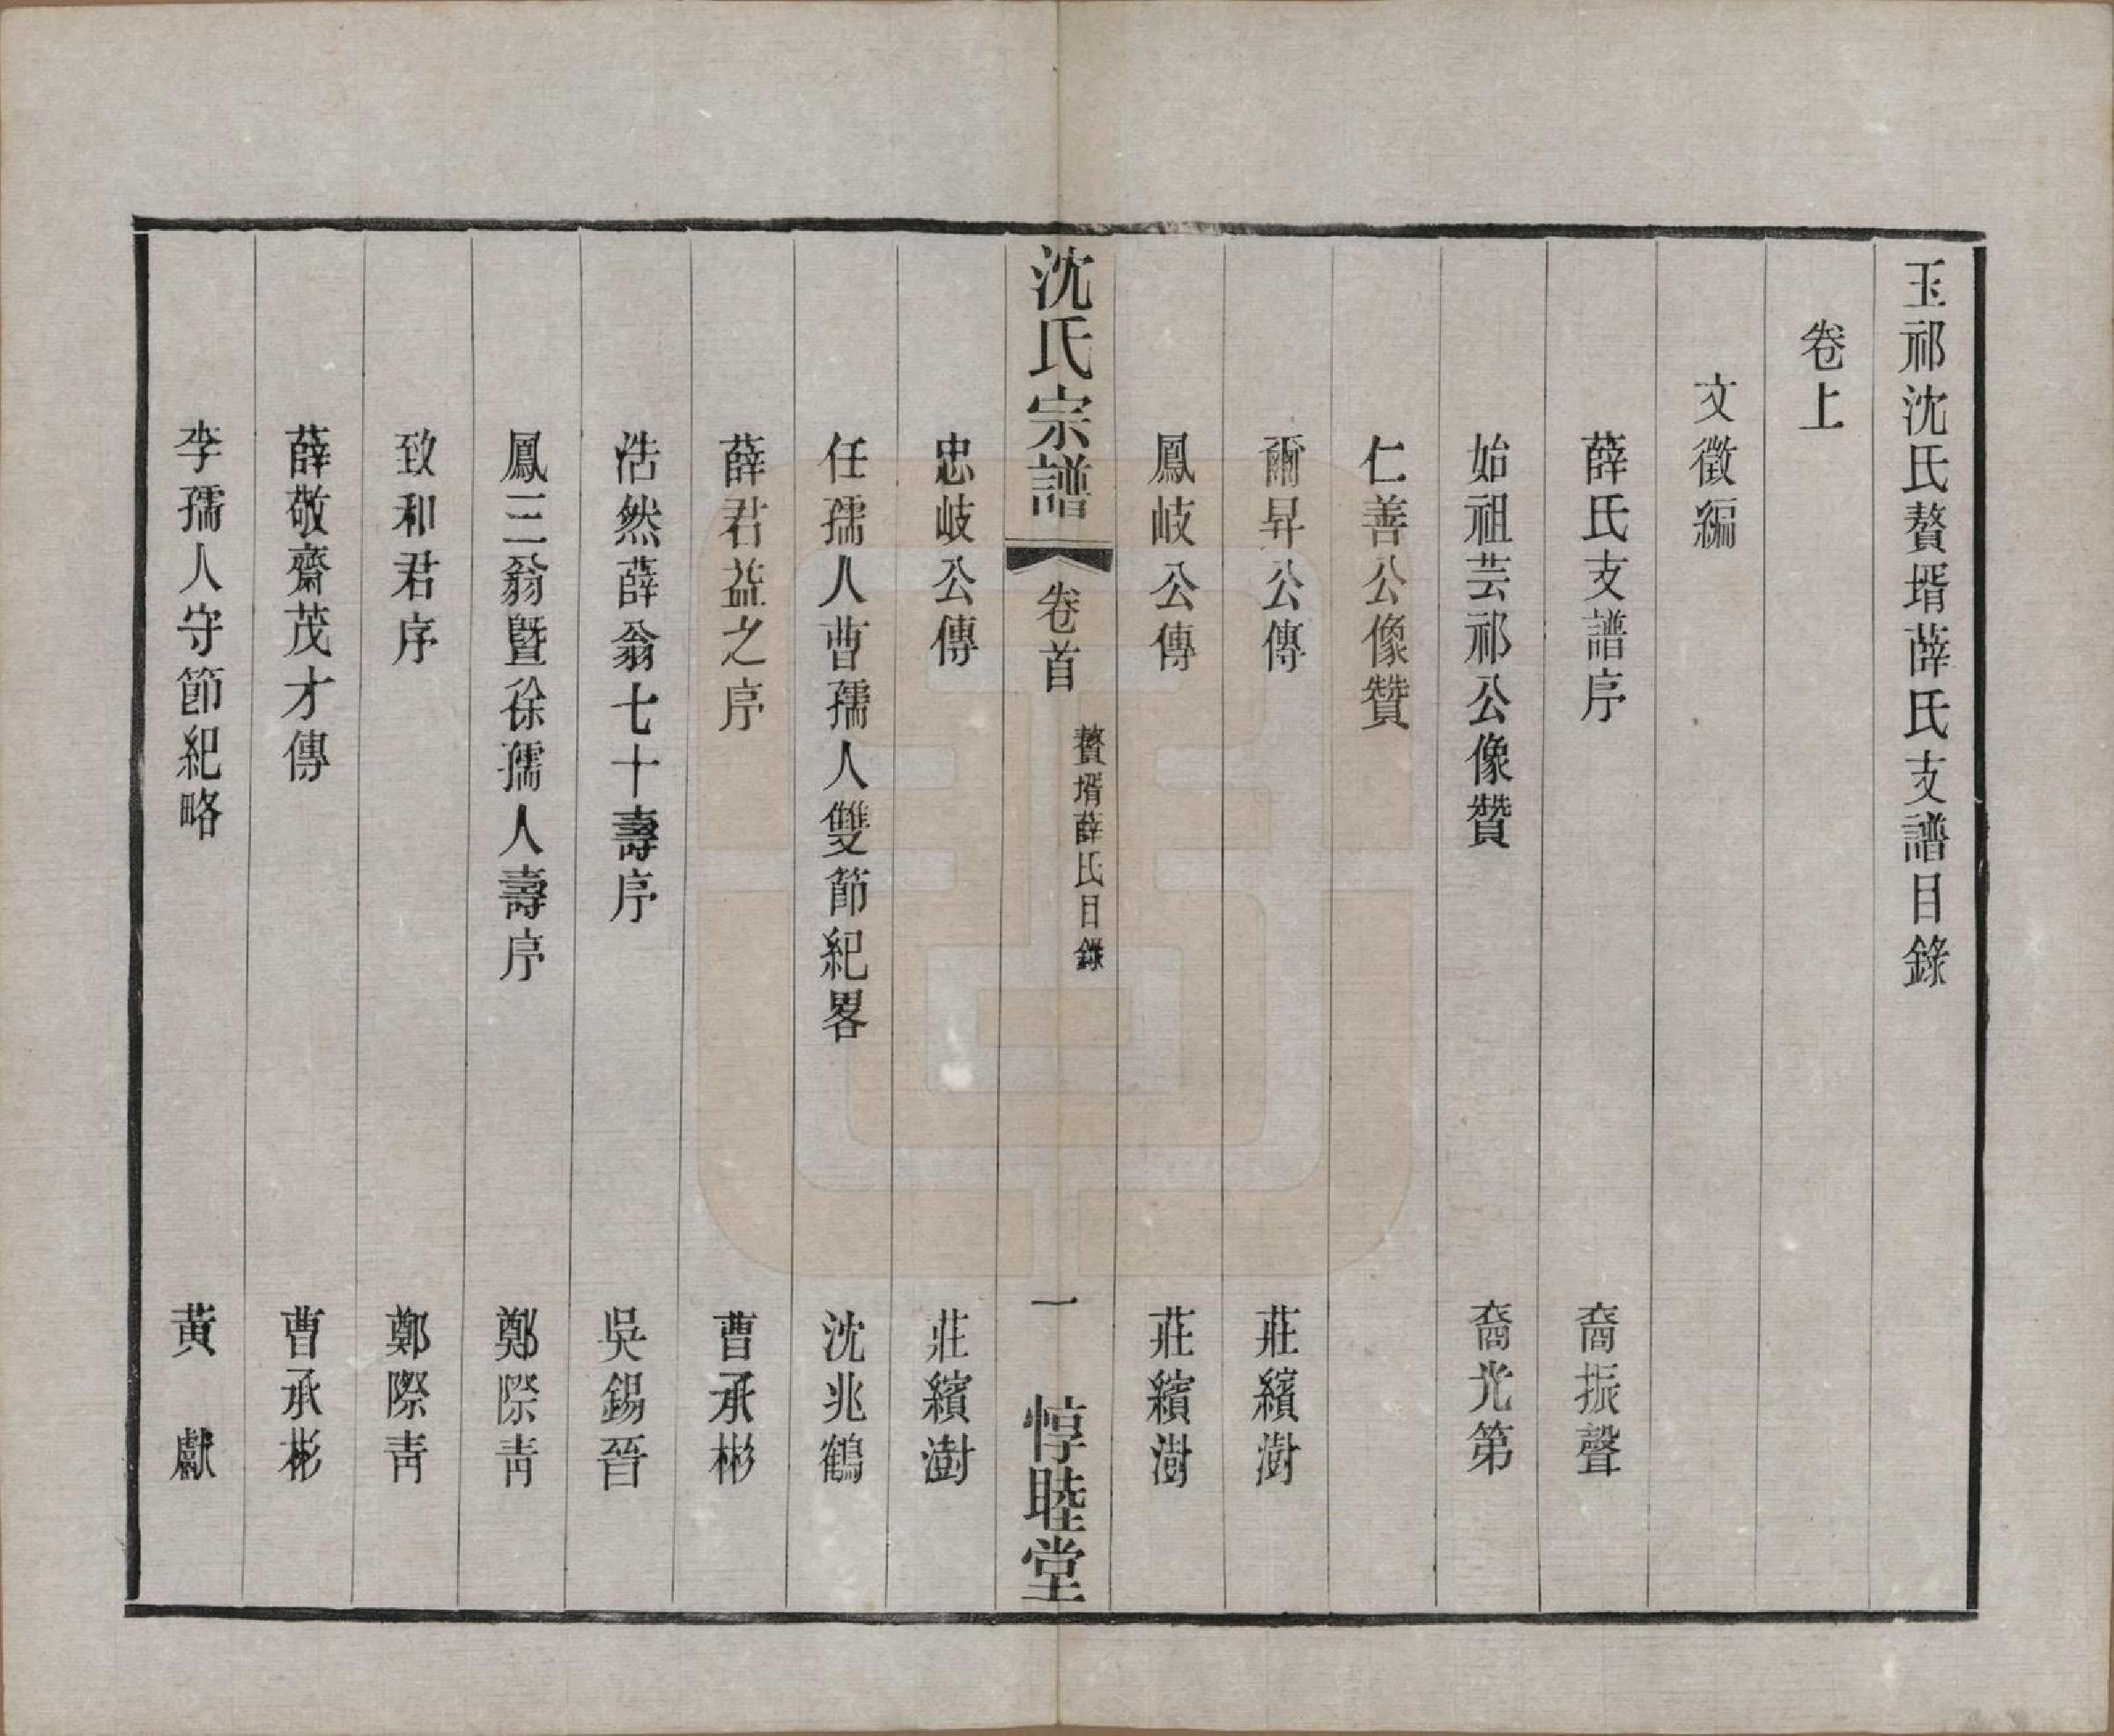 玉祁沈氏贅壻薛氏支譜目錄
卷上
文徵編
薛氏支譜序　裔振聲
始祖芸祁公像贊　裔光第
仁善公像贊
爾昇公傳　莊繽澍
鳳岐公傳　莊繽澍
沈氏宗譜　卷首　贅壻薛氏目錄　一　惇睦堂
忠岐公傳　莊繽澍
任孺人曹孺人雙節紀畧　沈兆鶴
薛君益之序　曹承彬
浩然薛翁七十壽序　吳錫晉
鳳三翁暨徐孺人壽序　鄭際靑
致和君序　鄭際靑
薛敬齋茂才傳　曹承彬
李孺人守節紀略　黃獻